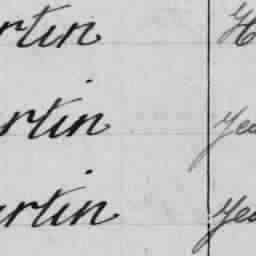 rtin H
rtin Yea
artin Yea